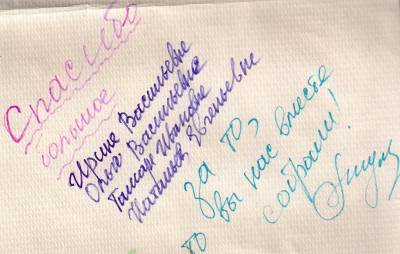 Спасибо
большое
Ирине Васильевне
Ольге Васильевне
Тамаре Ивановне
Наталье Евгеньевне
за то,
вы нас вместе
то собрали!